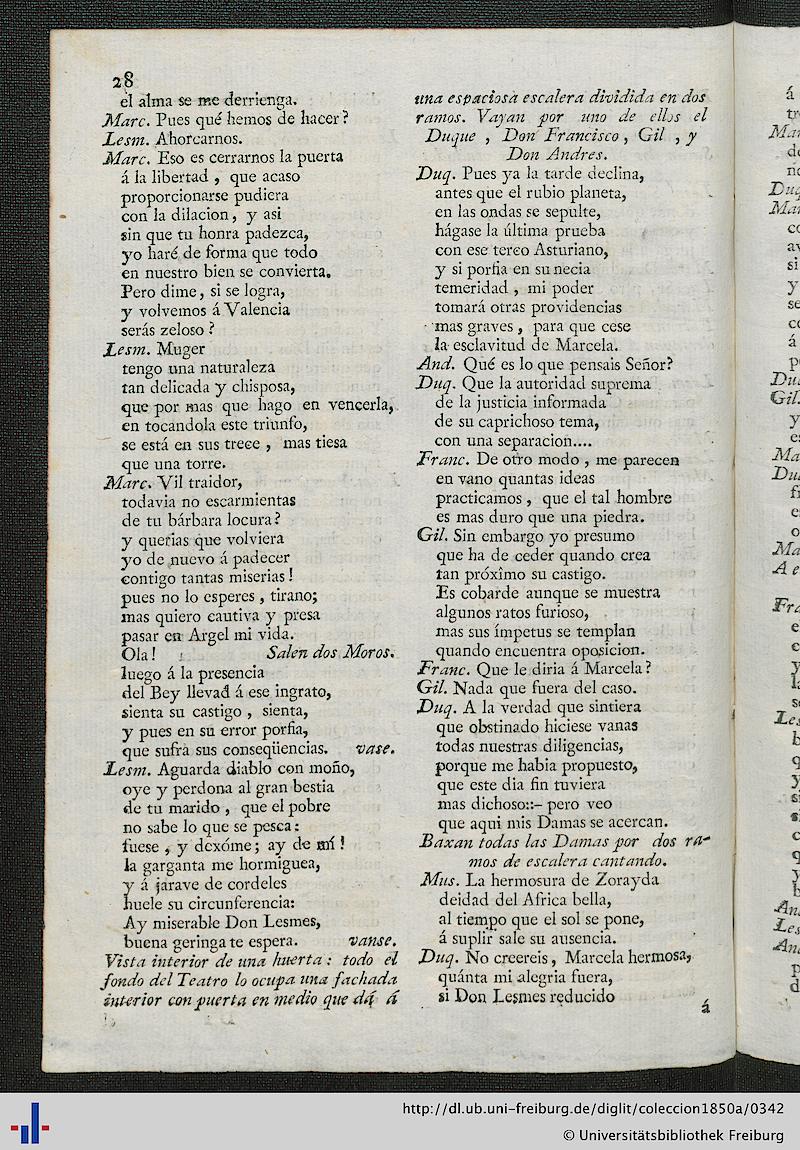 28
el alma se me derrienga.
Marc. Pues qué hemos de hacer?
Lesm. Ahorcarnos.
Marc. Eso es cerrarnos la puerta
á la libertad, que acaso
proporcionarse pudiera
con la dilacion, y asi
sin que tu honra padezca,
yo haré de forma que todo
en nuestro bien se convierta.
Pero dime, si se logra,
y volvemos á Valencia
serás zeloso?
Lesm. Muger
tengo una naturaleza
tan delicada y chisposa,
que por mas que hago en vencerla,
en tocandola este triunfo,
se está en sus trece, mas tiesa
que una torre.
Marc. Vil traidor,
todavia no escarmientas
de tu bárbara locura?
y querias que volviera
yo de nuevo á padecer
contigo tantas miserias!
pues no lo esperes, tirano;
mas quiero cautiva y presa
pasar en Argel mi vida.
Ola! Salen dos Moros.
luego á la presencia
del Bey llevad á ese ingrato,
sienta su castigo, sienta,
y pues en su error porfia,
que sufra sus conseqüencias. vase.
Lesm. Aguarda diablo con moño,
oye y perdona al gran bestia
de tu marido, que el pobre
no sabe lo que se pesca:
fuese, y dexóme; ay de mí!
la garganta me hormiguea,
y á jarave de cordeles
huele su circunferencia:
Ay miserable Don Lesmes,
buena geringa te espera. vanse.
Vista interior de una huerta: todo el
fondo del Teatro lo ocupa una fachada
interior con puerta en medio que dá á
una espaciosa escalera dividida en dos
ramos. Vayan por uno de ellos el
Duque, Don Francisco, Gil, y
Don Andres.
Duq. Pues ya la tarde declina,
antes que el rubio planeta,
en las ondas se sepulte,
hágase la última prueba
con ese terco Asturiano,
y si porfia en su necia
temeridad, mi poder
tomará otras providencias
mas graves, para que cese
la esclavitud de Marcela.
And. Qué es lo que pensais Señor?
Duq. Que la autoridad suprema
de la justicia informada
de su caprichoso tema,
con una separacion....
Franc. De otro modo, me parecen
en vano quantas ideas
practicamos, que el tal hombre
es mas duro que una piedra.
Gil. Sin embargo yo presumo
que ha de ceder quando crea
tan próximo su castigo.
Es cobarde aunque se muestra
algunos ratos furioso,
mas sus ímpetus se templan
quando encuentra oposicion.
Franc. Que le diria á Marcela?
Gil. Nada que fuera del caso.
Duq. A la verdad que sintiera
que obstinado hiciese vanas
todas nuestras diligencias,
porque me habia propuesto,
que este dia fin tuviera
mas dichoso::- pero veo
que aqui mis Damas se acercan.
Baxan todas las Damas por dos ra-
mos de escalera cantando.
Mus. La hermosura de Zorayda
deidad del Africa bella,
al tiempo que el sol se pone,
á suplir sale su ausencia.
Duq. No creereis, Marcela hermosa,
quánta mi alegria fuera,
si Don Lesmes reducido
á
http://dl.ub.uni-freiburg.de/diglit/coleccion1850a/0342
© Universitätsbibliothek Freiburg